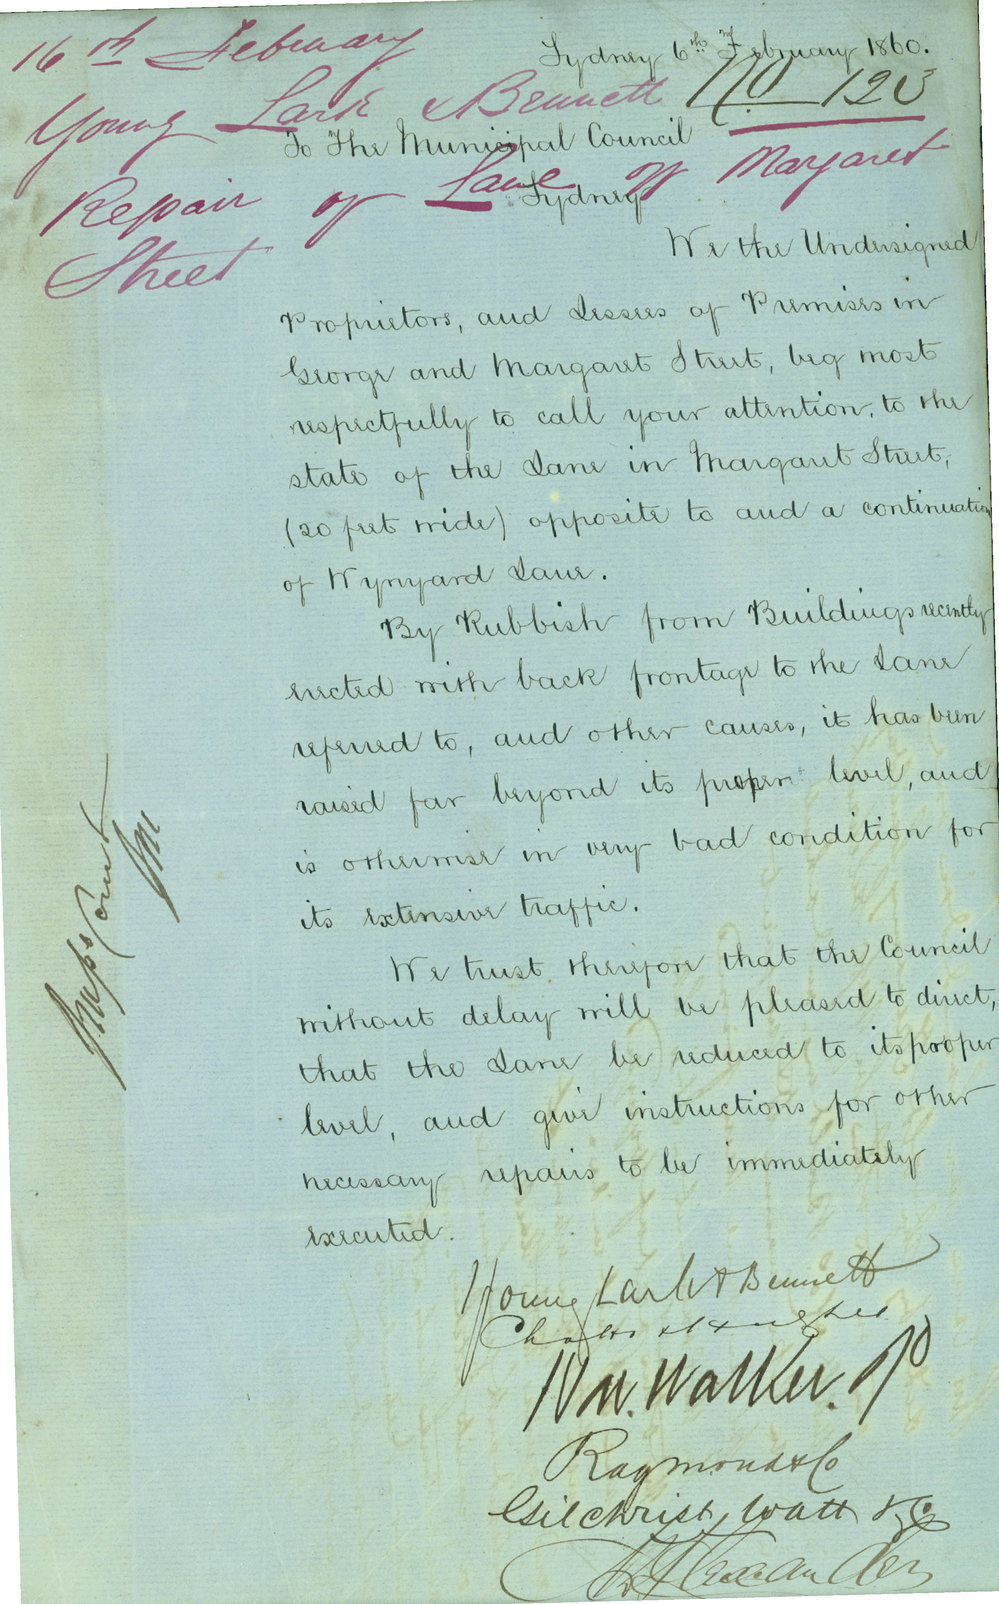 16th February
Sydney 6th February 1860.
No 123
Young Lark & Bennett
To The Municipal Council
Repair of Lane of Margaret
Sydney
Street
We the Undersigned
Proprietors, and Lessees of Premises in
George and Margaret Street, beg most
respectfully to call your attention, to the
state of the Lane in Margaret Street,
(20 feet wide) opposite to and a continuation
of Wynyard Lane.
By Rubbish from Buildings recently
erected with back frontage to the Lane
referred to, and other causes, it has been
raised far beyond its proper level, and
is otherwise in very bad condition for
its extensive traffic.
We trust therefore that the Council
without delay will be pleased to direct,
that the Lane be reduced to its proper
level, and give instructions for other
necessary repairs to be immediately
executed.
Young Lark & Bennett
Wm. Walker.
Raymond & Co
Gilchrist, Watt & Co